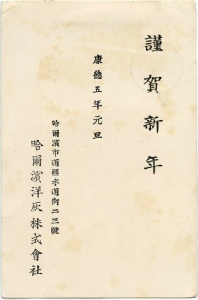 謹賀新年
康德五年元旦
哈爾濱市道裡水道街二三號
哈爾濱洋灰株式會社